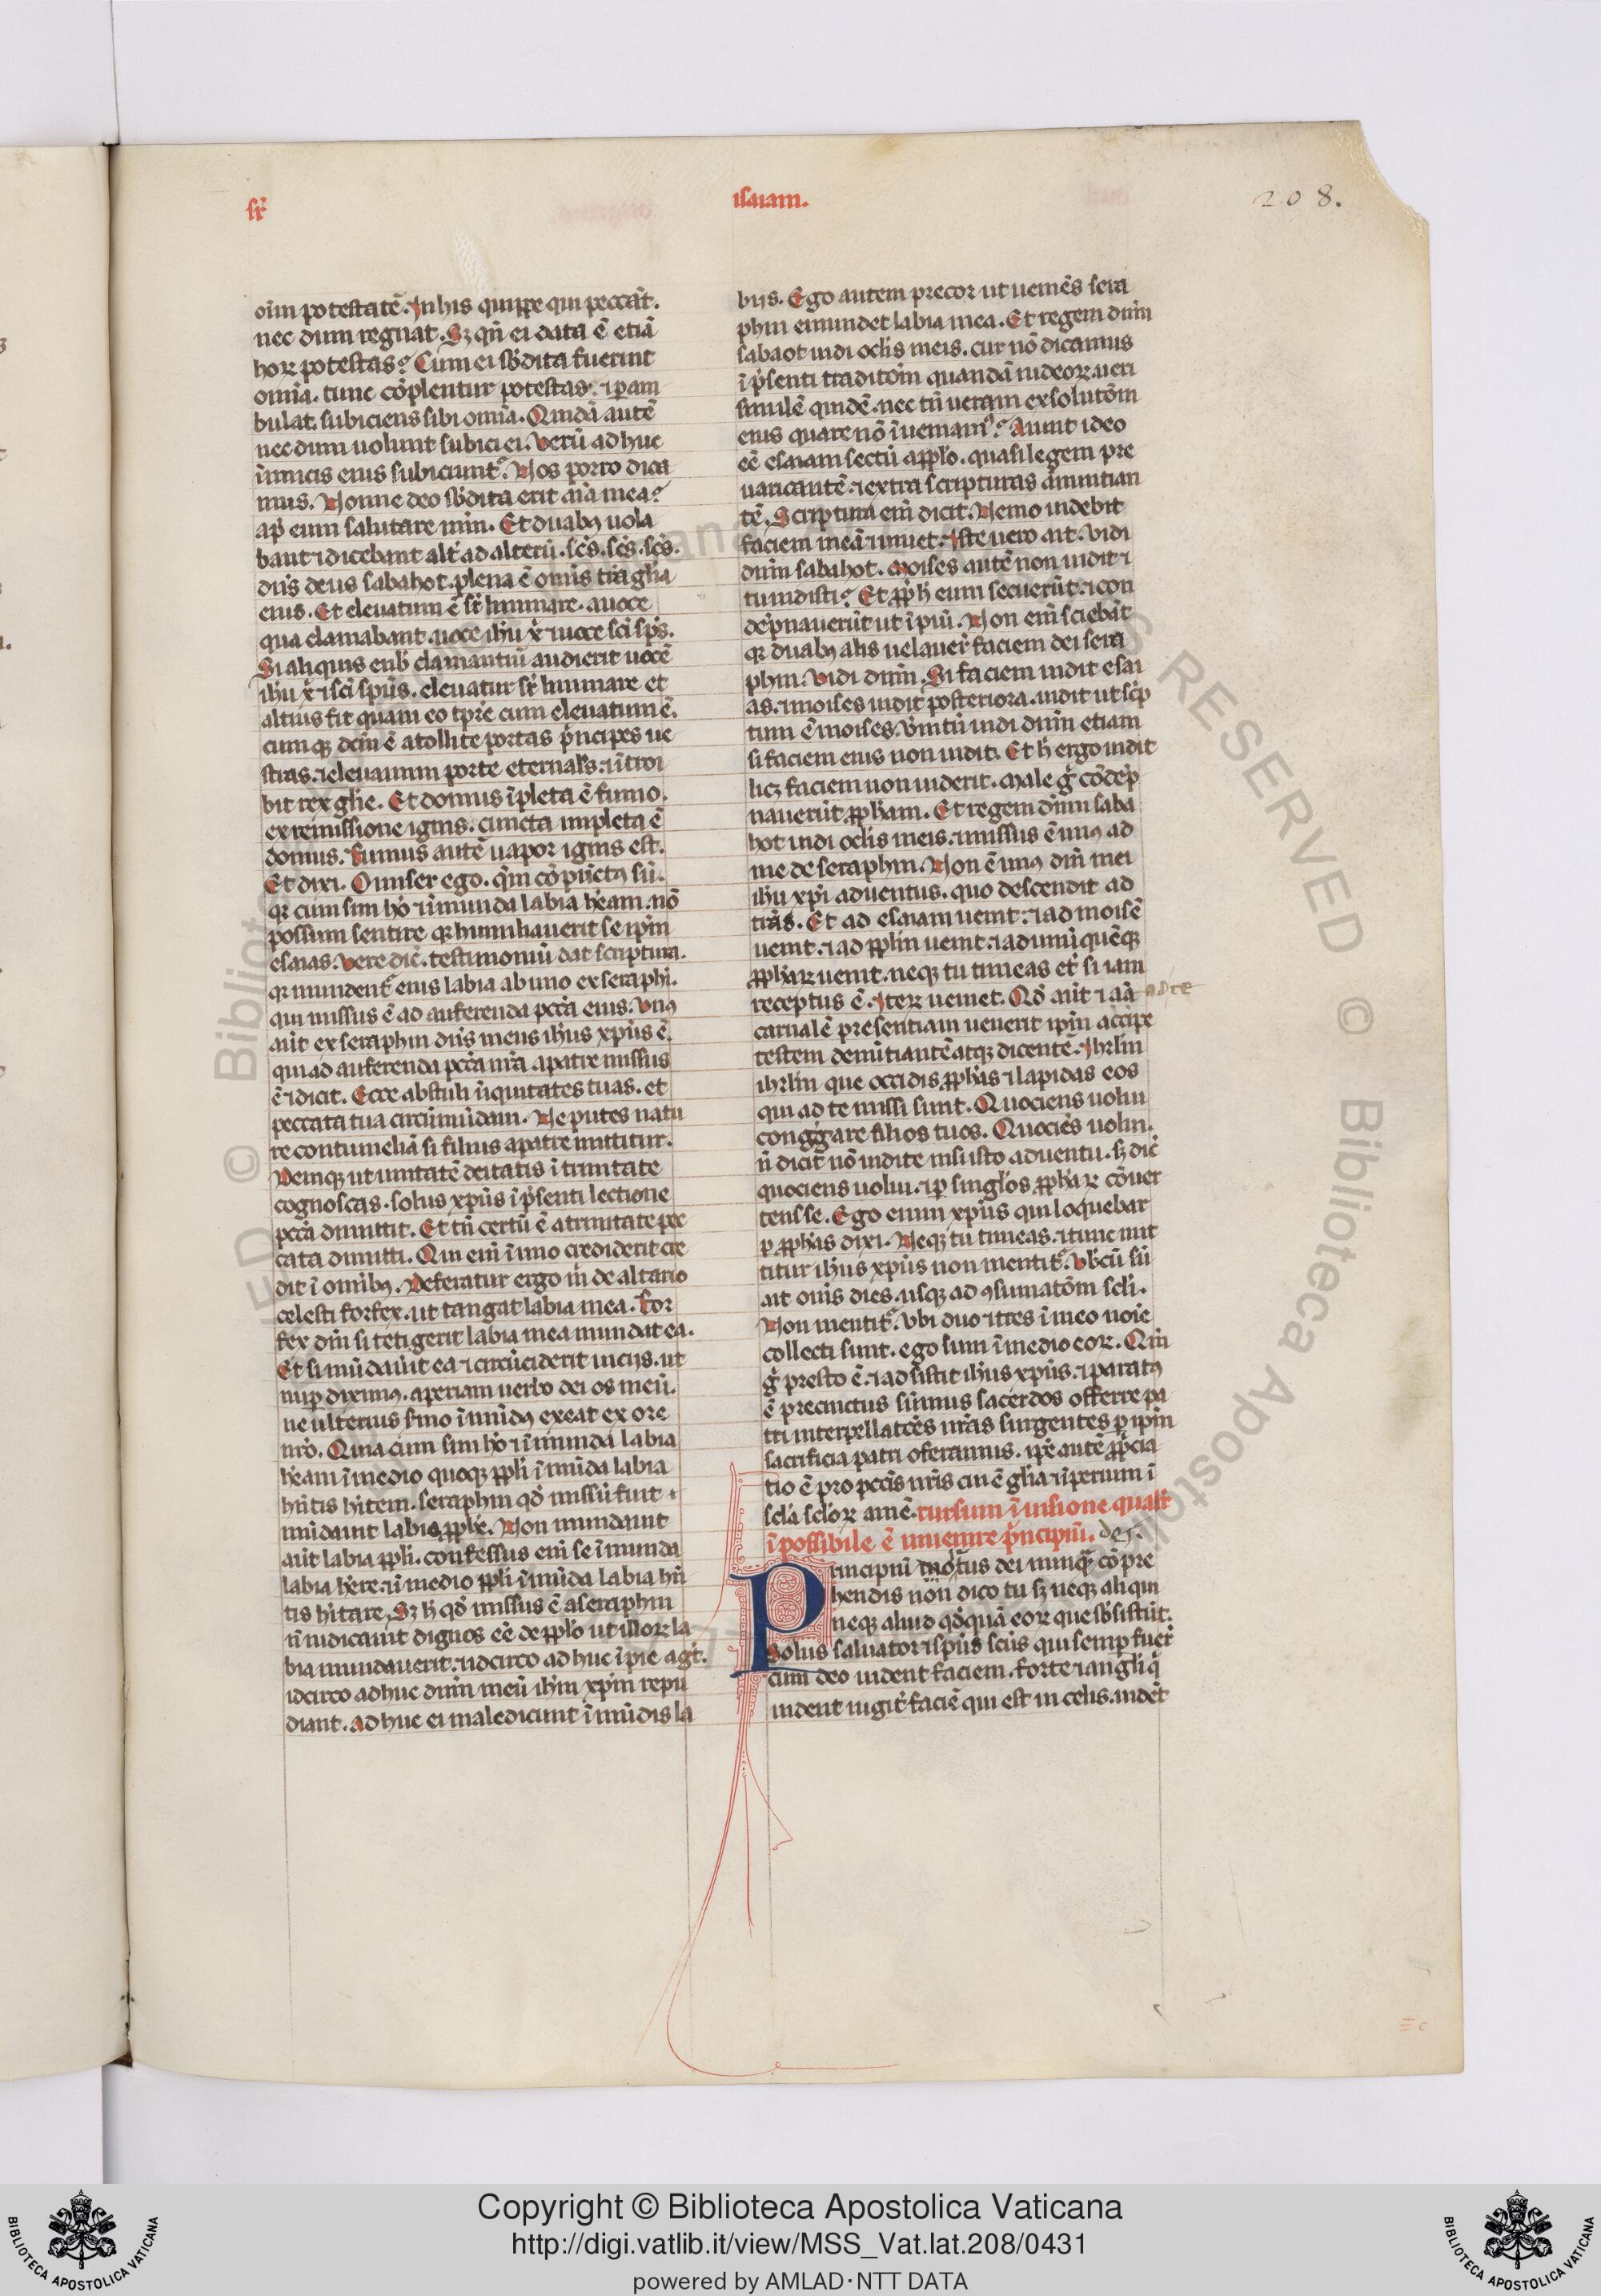 sr̄
isaiam.
208.
oīm potestatē. In his quippe qui peccāt.
nec dum regnat. Sꝫ qn̄ ei data ē etiā
hoꝝ potestas? Cum ei sb̄dita fuerint
omīa. tunc cōplentur potestas. ⁊ ꝑam
bulat. subiciens sibi omīa. Quidā autē
nec dum uolunt subici ei. Verū ad huc
inimicis eius subiciunt᷑. Nos porro dica
mus. Nonne deo sb̄dita erit aīa mea?
ap̄ eum salutare mm̄. Et duabꝰ uola
bant ⁊ dicebant alt̄ ad alterū. sc̄s. sc̄s. sc̄s.
dn̄s deus sabahot. plena ē omīs t̄ra gl̄ia
eius. Et eleuatum ē sr̄ liminare. a uoce
qua clamabant. uoce ih̄u xp̄i ⁊ uoce sc̄i sp̄s.
Si aliquis enī clamantiū audierit uocē
ih̄u xp̄i ⁊ sc̄i sp̄us. eleuatur sr̄ liminare et
altius fit quam eo tp̄re cum eleuatum ē.
cumqꝫ dc̄m ē atollite portas p̄ncipes ue
stras. ⁊ eleuamini porte eternales. ⁊ ītroi
bit rex gl̄ie. Et domus īpleta ē fumo.
ex remissione ignis. cuncta impleta ē
domus. Fumus autē uapor ignis est.
Et dixi. O miser ego. qm̄ cōpūctꝰ sū.
qꝛ cum sim hō ⁊ īmunda labia hēam. nō
possum sentire qꝛ humiliauerit se ip̄m
esaias. Vere dic̄. testimoniū dat scriptura.
qꝛ mundent᷑ eius labia ab uno ex seraphī.
qui missus ē ad auferenda pc̄cā eius. Vnꝰ
aūt ex seraphin dn̄s meus ih̄us xp̄us ē.
qui ad auferenda pc̄cā nr̄a a patre missus
ē ⁊ dicit. Ecce abstuli īiquitates tuas. et
peccata tua circūmūdaui. Ne putes natu
re contumeliā si filius a patre mittitur.
Deniqꝫ ut unitatē deitatis ī trinitate
cognoscas. solus xp̄us ī p̄senti lectione
pc̄cā dimittit. Et tn̄ certū ē a trinitate pec
cata dimitti. Qui enī ī uno crediderit cre
dit ī omībꝰ. Deferatur ergo m̄ de altario
celesti forfex. ut tangat labia mea. For
fex dn̄i si tetigerit labia mea mundat ea.
Et si mūdauīt ea ⁊ circūciderit uicijs. ut
nup̄ diximꝰ. aperiam uerbo dei os meū.
ne ulterius sermo īmūdꝰ exeat ex ore
nr̄o. Quia cum sim hō ⁊ īmunda labia
hēam ī medio quoqꝫ pp̄li īmūda labia
hn̄tis hītem. seraphin qd̄ missū fuit ⁊
mūdauit labia ꝓph̄e. Non mundauit
aūt labia pp̄li. confessus enī se īmunda
labia hēre. ⁊ ī medio pp̄li īmūda labia hn̄
tis hītare. Sꝫ h̄ qd̄ missus ē a seraphin
n̄ iudicauit dignos eē de pp̄lo ut illoꝝ la
bia mundauerit. idcirco ad huc īpie agt̄.
idcirco ad huc dn̄m meū ih̄m xp̄m repu
diant. Ad huc ei maledicunt īmūdis la
bijs. Ego autem precor ut ueniēs sera
phin emundet labia mea. Et regem dn̄m
sabaot uidi oclīs meis. cur nō dicamus
ī p̄senti traditōm quandā iudeoꝝ. ueri
similē quidē. nec tn̄ ueram ex solutōm
eius quare nō īueniamꝰ? Aiunt ideo
eē esaiam sectū a pp̄lo. quasi legem pre
uaricantē. ⁊ extra scripturas annuntian
tē. Scriptura enī dicit. Nemo uidebit
faciem meā ⁊ uiuet. Iste uero ait. Vidi
dn̄m sabahot. Moises autē non uidit ⁊
tu uidisti? Et ꝓp̄ h̄ eum secuerūt. ⁊ con
dēpnauerūt ut īpiū. Non enī sciebāt
qꝛ duabꝰ alis uelauer̄ faciem dei sera
phin. Vidi dn̄m. Si faciem uidit esai
as. ⁊ moises uidit posteriora. uidit ut sc̄p
tum ē moises. Veruntn̄ uidi dn̄m etiam
si faciem eius non uidit. Et h̄ ergo uidit
licꝫ faciem non uiderit. Male g̊ cōdēp
nauerūt ꝓph̄am. Et regem dn̄m saba
hot uidi oclīs meis. ⁊ missus ē unꝰ ad
me de seraphin. Non ē unꝰ dn̄i mei
ih̄u xp̄i aduentus. quo descendit ad
t̄ras. Et ad esaiam uenit. ⁊ ad moisē
uenit. ⁊ ad pp̄lm uenit. ⁊ ad unūquēqꝫ
ꝓph̄aꝝ uenit. neqꝫ tu timeas et̄ si iam
receptus ē. Iteꝝ ueniet. Qd̄ aūt ⁊ an̄
ad te
carnalē presentiam uenerit ip̄m accipe
testem denūtiantē atqꝫ dicentē. Ihrl̄m
ihrl̄m que occidis ꝓph̄as ⁊ lapidas eos
qui ad te missi sunt. Quociens uolui
congregare filios tuos. Quociēs uolui.
n̄ dicit nō uidi te nisi isto aduentu. sꝫ dic̄
quociens uolui. ⁊ ꝑ singl̄os ꝓph̄aꝝ cōuer
tens se. Ego enim xp̄us qui loquebar
ꝑ ꝓph̄as dixi. Neqꝫ tu timeas. ⁊ tunc mit
titur ih̄us xp̄us non mentit᷑. Vb̄cū sū
ait omīs dies. usqꝫ ad ꝯsumatōm sc̄li.
Non mentit᷑. Vbi duo ⁊ tres ī meo noīe
collecti sunt. ego sum ī medio eoꝝ. Qm̄
g̊ presto ē. ⁊ adsistit ih̄us xp̄us. ⁊ paratꝰ
ē precinctus sūmus sacerdos offerre pa
tri interpellatōēs nr̄as surgentes ꝑ ip̄m
sacrificia patri oferamus. ip̄e autē ꝓpicia
tio ē pro pc̄cīs nr̄is cui ē gl̄ia ⁊ īperium ī
sc̄la sc̄loꝝ amē. rursum ī uisione qualit̄
ī possibile ē inuenire p̄ncipiū. des.
Principiū tuōtus dei nunqꝫ cōpre
hendis non dico tu sꝫ neqꝫ aliqui
neqꝫ aliud qd̄quā eoꝝ que sb̄sistūt.
Solus saluator ⁊ sp̄us sc̄us qui semꝑ fuer̄
cum deo uident faciem. forte ⁊ angl̄i q̄
uident iugit̄ faciē qui est in celis. uidēt
ec
Copyright © Biblioteca Apostolica Vaticana
http://digi.vatlib.it/view/MSS_Vat.lat.208/0431
powered by AMLAD·NTT DATA
BIBLIOTECA APOSTOLICA VATICANA
BIBLIOTECA APOSTOLICA VATICANA